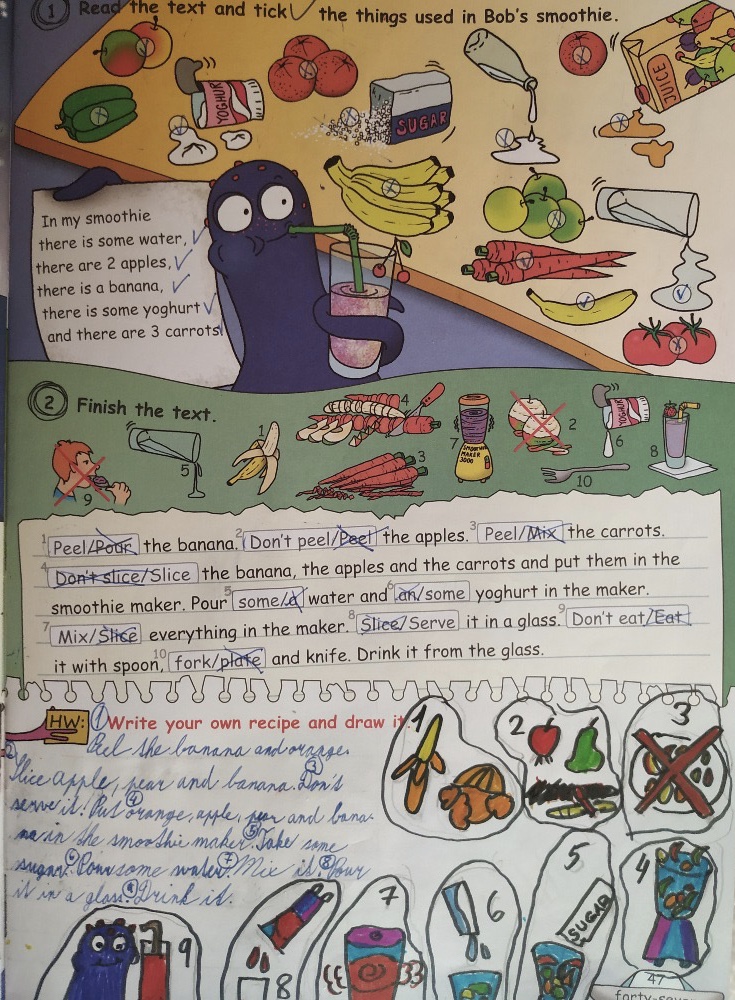 1 Read the text and tick ✓ the things used in Bob's smoothie.
YOGHUR
SUGAR
JUICE
In my smoothie
there is some water, ✓
there are 2 apples, ✓
there is a banana, ✓
there is some yoghurt ✓
and there are 3 carrots.
2 Finish the text.
9
5
1
4
3
7
SMOOTHIE MAKER 3000
2
YOGHUR
6
8
10
1 Peel/Pour the banana. 2 Don't peel/Peel the apples. 3 Peel/Mix the carrots.
4 Don't slice/Slice the banana, the apples and the carrots and put them in the
smoothie maker. Pour 5 some/a water and 6 an/some yoghurt in the maker.
7 Mix/Slice everything in the maker. 8 Slice/Serve it in a glass. 9 Don't eat/Eat
it with spoon, 10 fork/plate and knife. Drink it from the glass.
HW: 1 Write your own recipe and draw it
Peel the banana and orange.
2 Slice apple, pear and banana. 3 Don't
serve it. 4 Put orange, apple, pear and bana-
na in the smoothie maker. 5 Take some
sugar. 6 Pour some water. 7 Mix it. 8 Pour
it in a glass. 9 Drink it.
1
2
3
4
5
SUGAR
6
7
8
9
47
forty-seven